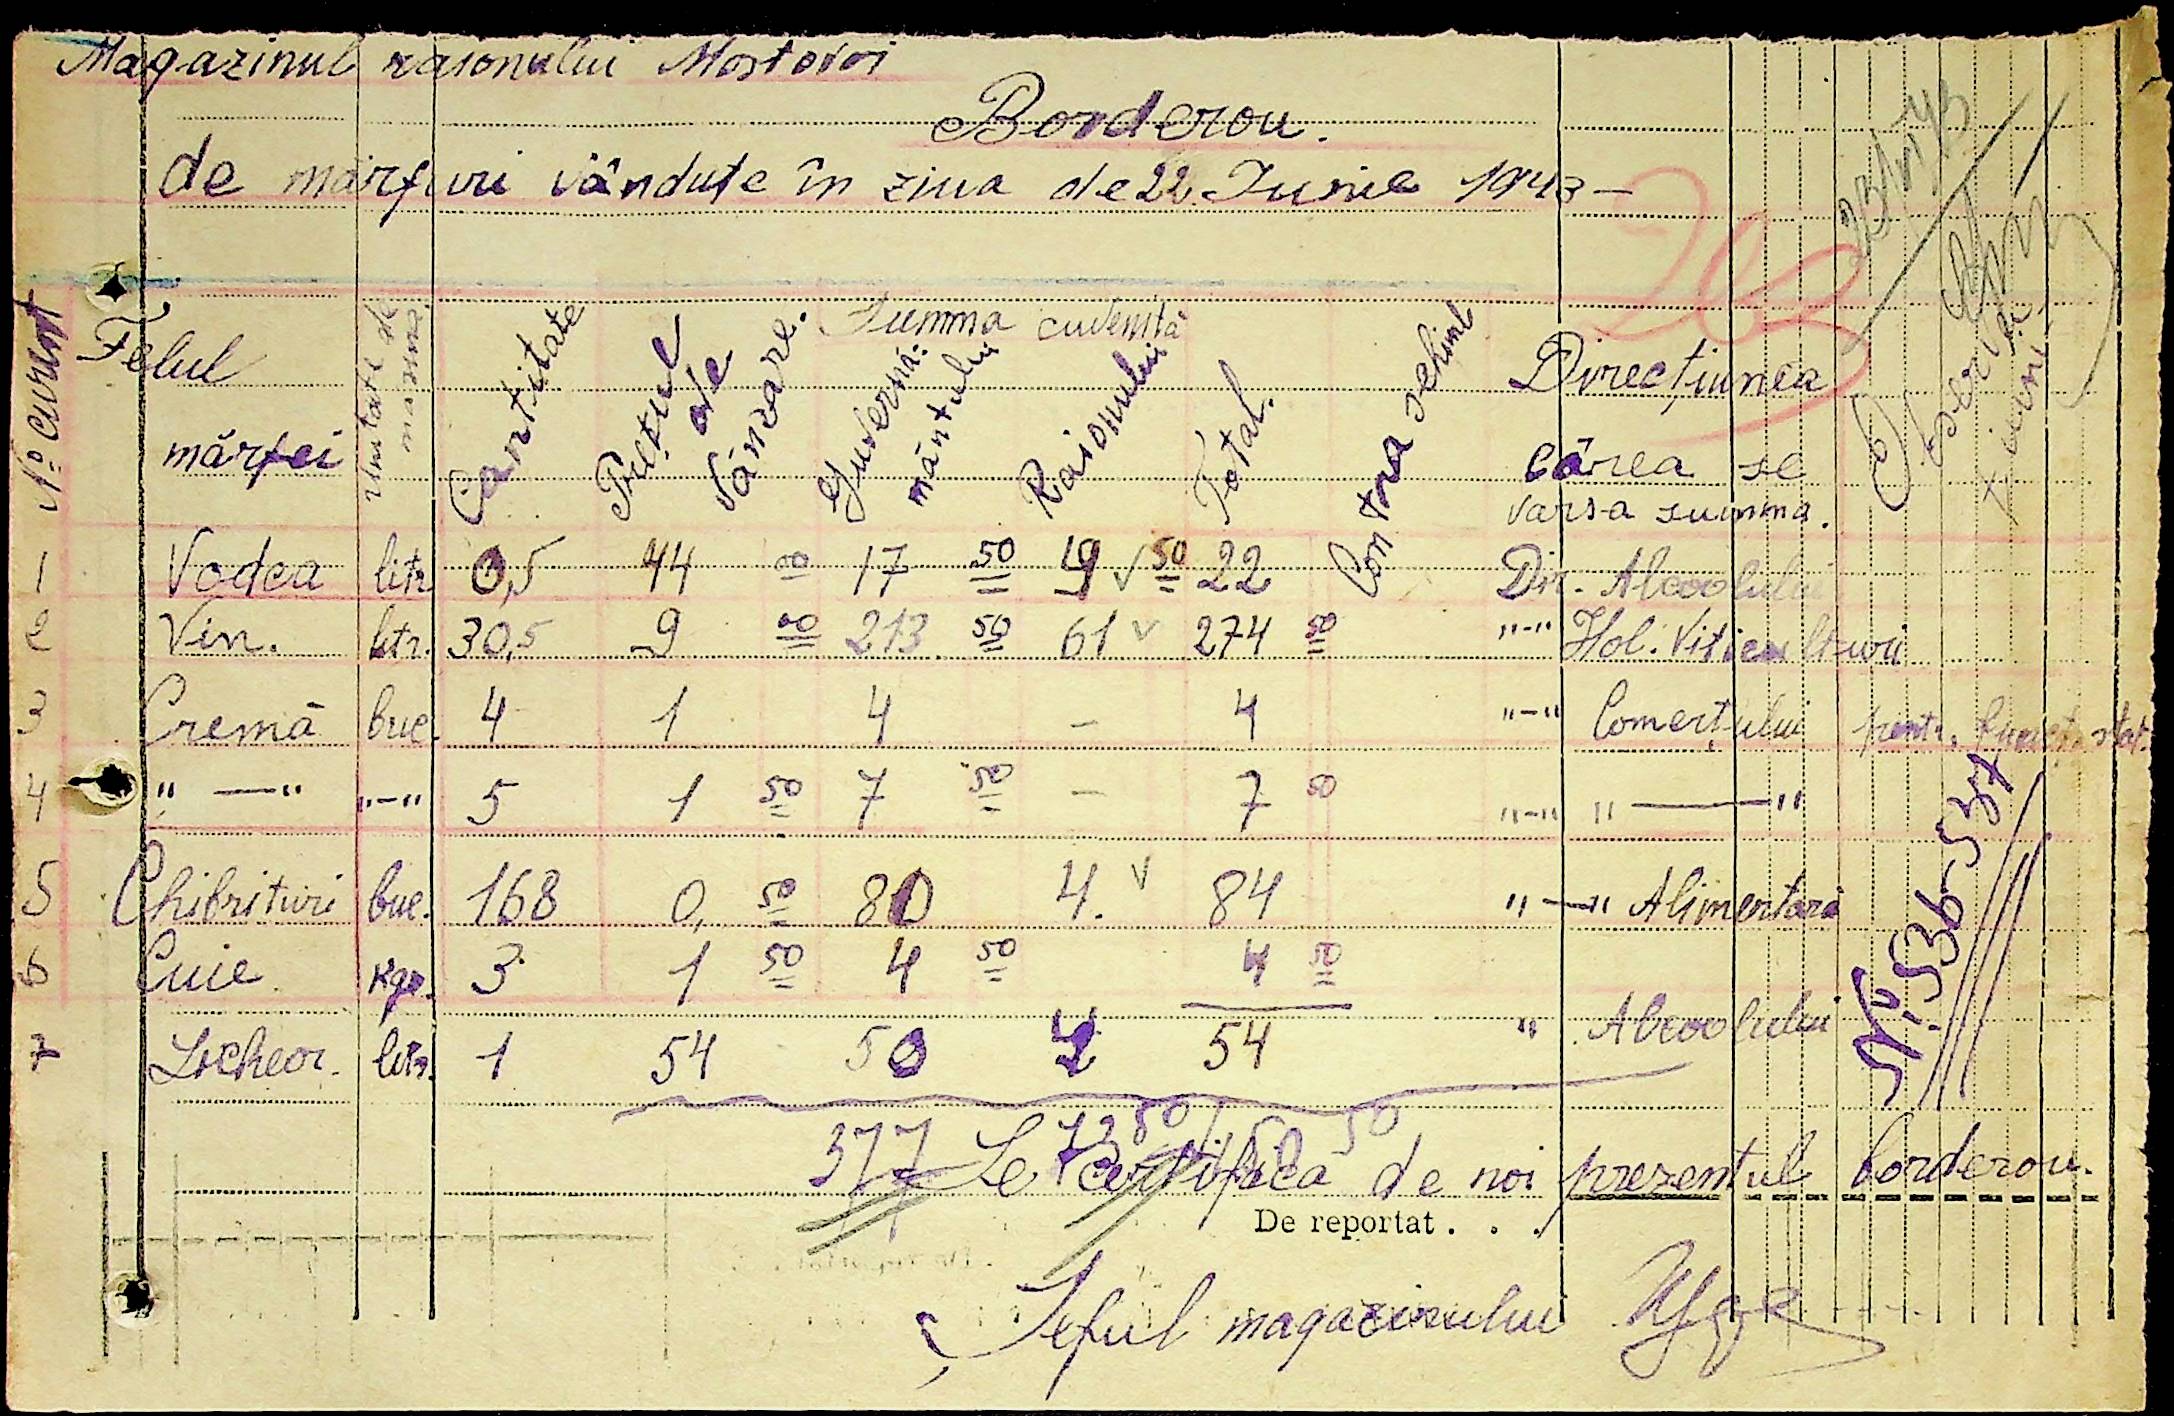 Magazinul raionului Mostovoi
Borderou.
de mărfuri vândute în ziua de 22 Iunie 1943 -
No curent | Felul mărfei | Unitate de masură | Cantitate | Prețul de vânzare. | Summa cuvenită | Guvernă-mântului | Raionului | Total. | Contra schimb | Direcțiunea cărea se varsa summa. | Observațiuni
1 Vodca litr. 0,5 44 00 17 50 4 50 22 Dir. Alcoolului
2 Vin. litr. 30,5 9 00 213 50 61 274 50 "-" Hol. Viticulturii
3 Cremă buc. 4 1 4 - 4 "-" Comerțului pentr. funcț. stat.
4 " — " "-" 5 1 50 7 50 - 7 50 "-" " — "
5 Chibrituri buc. 168 0, 50 80 4. 84 "—" Alimentară
6 Cuie kgr. 3 1 50 4 50 4 50
7 Licheor. litr. 1 54 50 4 54 " Alcoolului
377 73 50 50
Se certifică de noi prezentul borderou.
De reportat . . .
Șeful magazinului
No 536-537